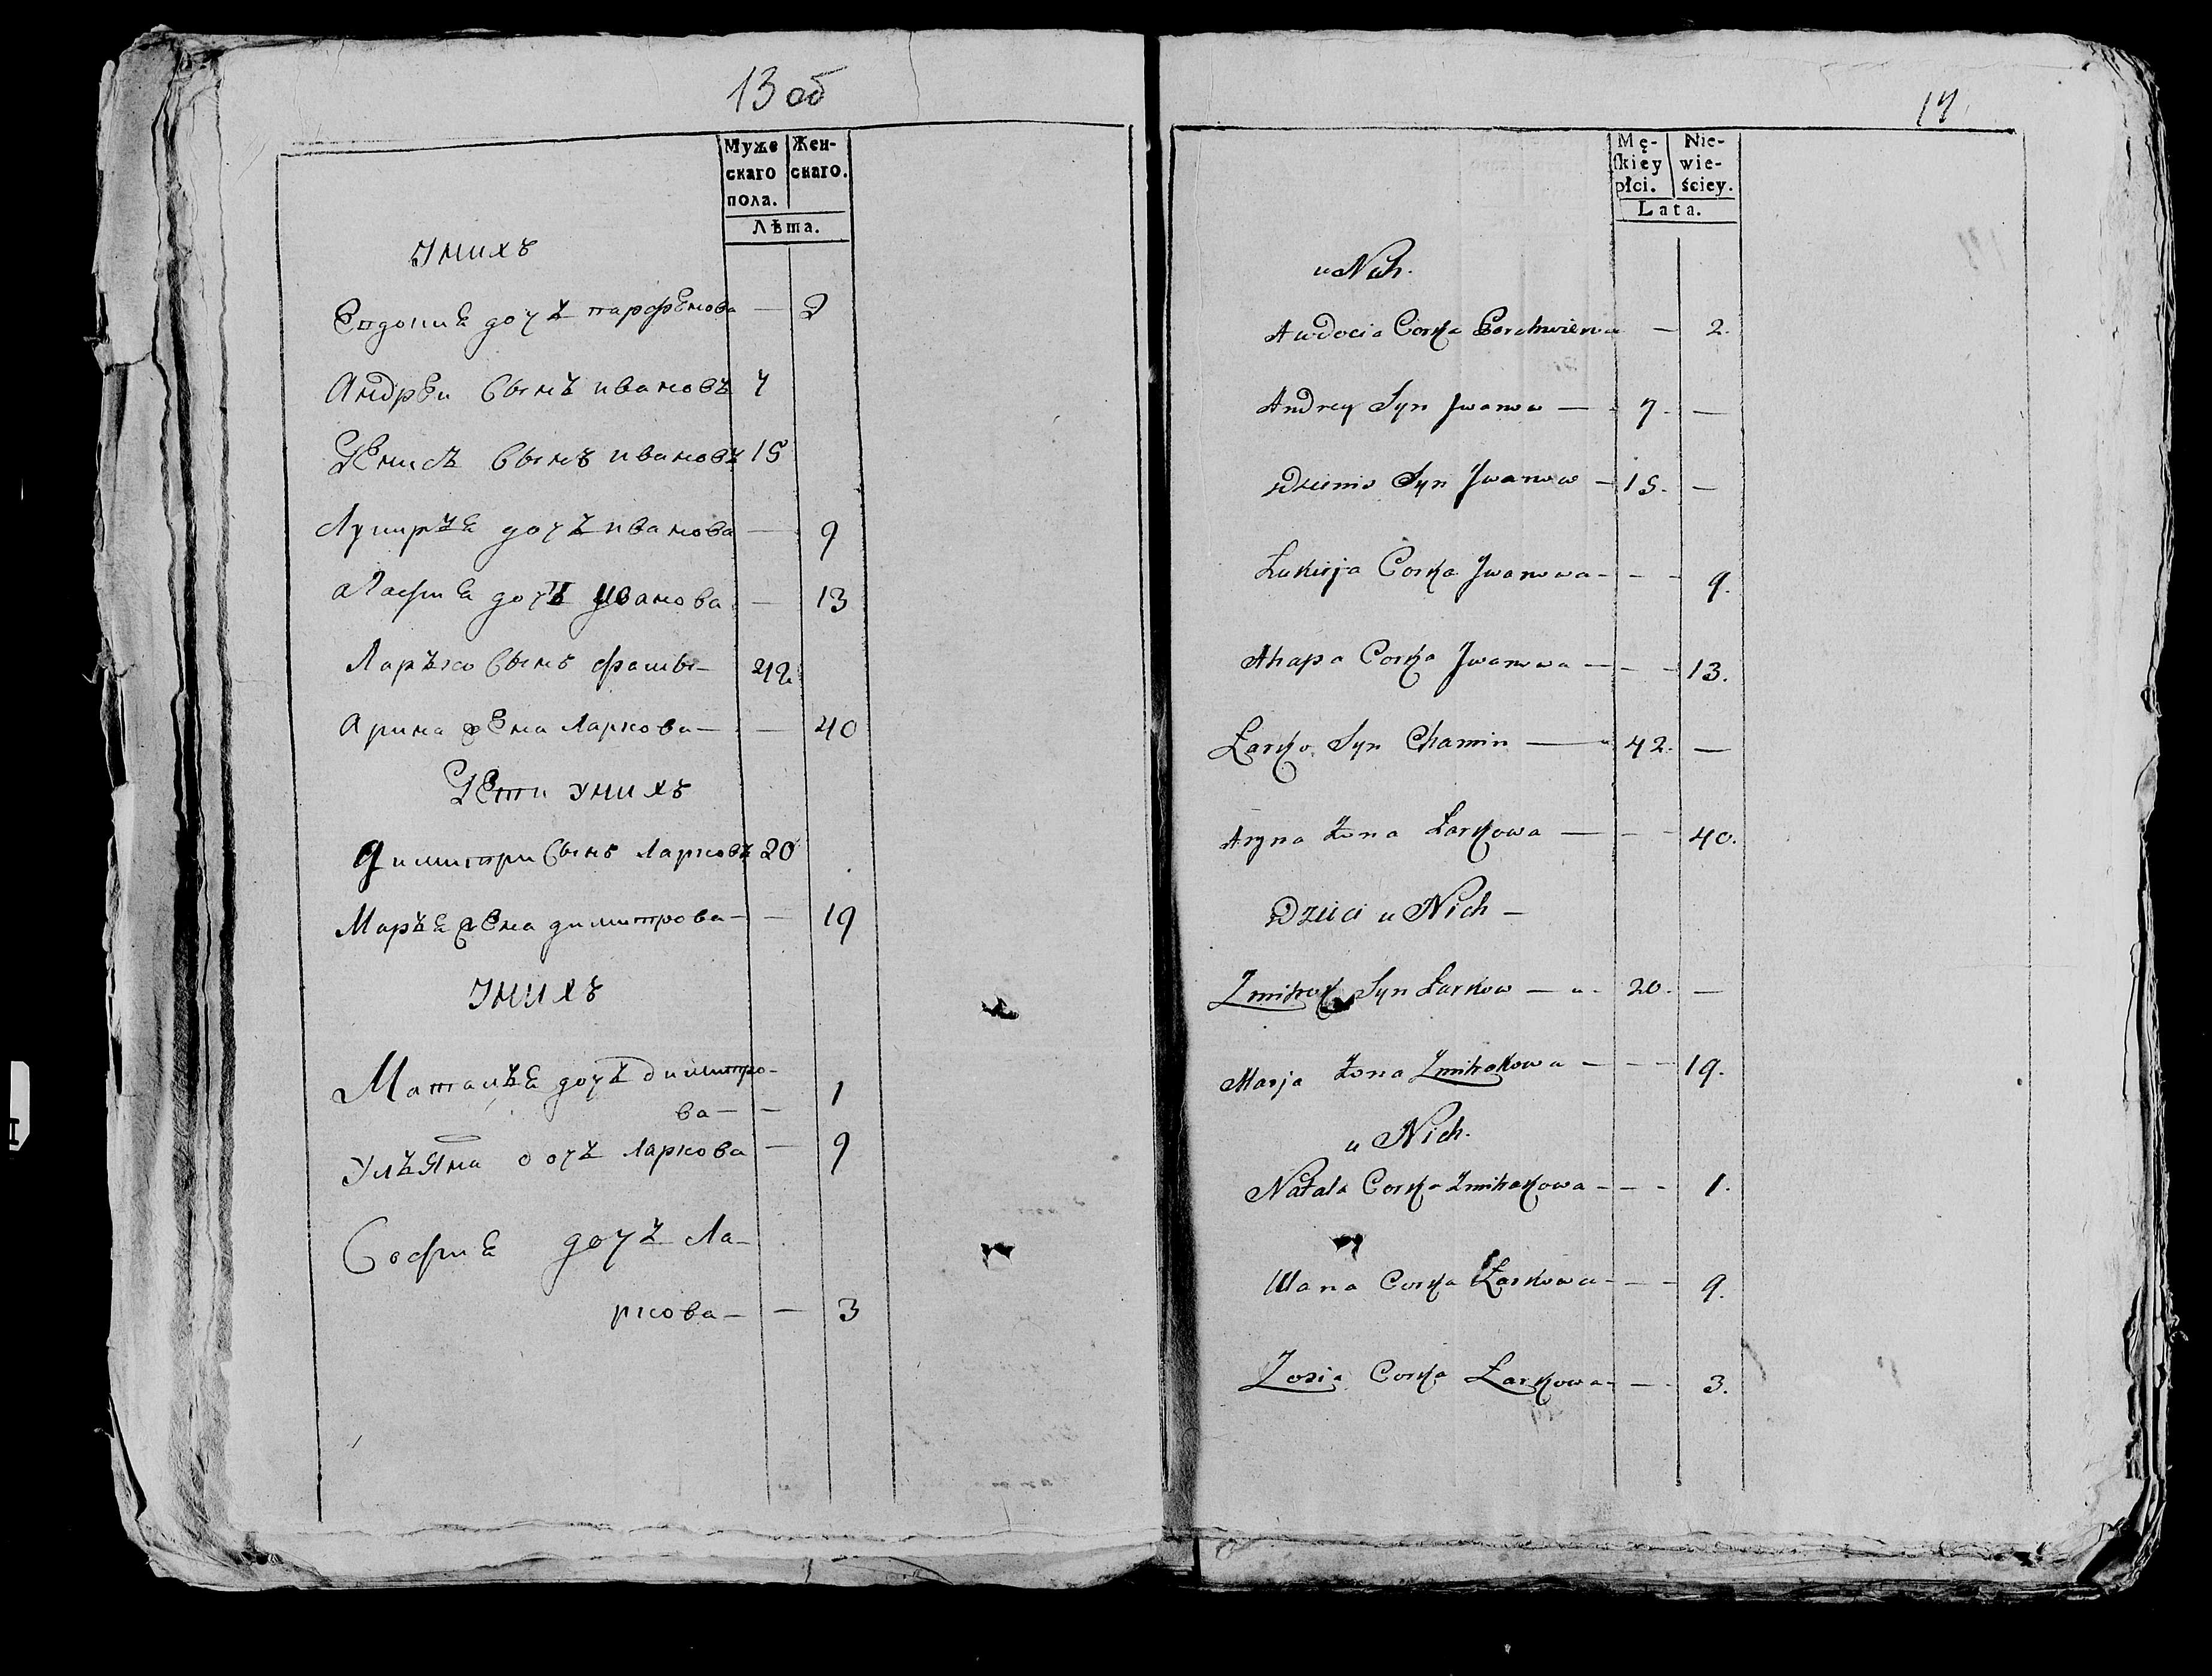 13 об
Муже
скаго
пола.
Жен-
скаго.
Лѣта.
Унихъ
Евдокиѣ дочъ парфенова — 2
Андреи Сынъ ивановъ 7
Денисъ Сынъ ивановъ 15
Лукиръѣ дочъ иванова — 9
агафиѣ дочъ иванова — 13
Ларько Сынъ фомы — 42
Арина жена Ларкова — — 40
Дети Унихъ
Димитри Сынъ Ларковъ 20
Маръѣ жена димитрова — — 19
Унихъ
Наталъѣ дочъ димитро-
ва — — 1
Улъяна дочъ Ларкова — 9
Софиѣ дочъ Ла-
ркова — — 3
14
Mę-
ſkiey
płci.
Nie-
wie-
ściey.
Lata.
u Nich.
Awdocia Corka Parchwienowa — 2.
Andrey Syn Jwanow — 7. —
Dzienis Syn Jwanow — 15. —
Łukirja Corka Jwanowa — — 9.
Ahapa Corka Jwanowa — — 13.
Łarko Syn Chamin — 42. —
Aryna Żona Łarkowa — — 40.
Dzieci u Nich —
Zmitrok Syn Łarkow — 20. —
Marja Żona Zmitrokowa — — 19.
u Nich.
Natala Corka Zmitrokowa — — 1.
Ulana Corka Łarkowa — — 9.
Zosia Corka Łarkowa — — 3.